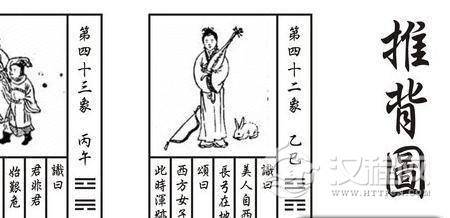 推背圖
第四十二象 乙巳
讖曰
美人自西
長弓在地
頌曰
西方女子
此時渾跡
第四十三象 丙午
讖曰
君非君
始艱危
汉程网